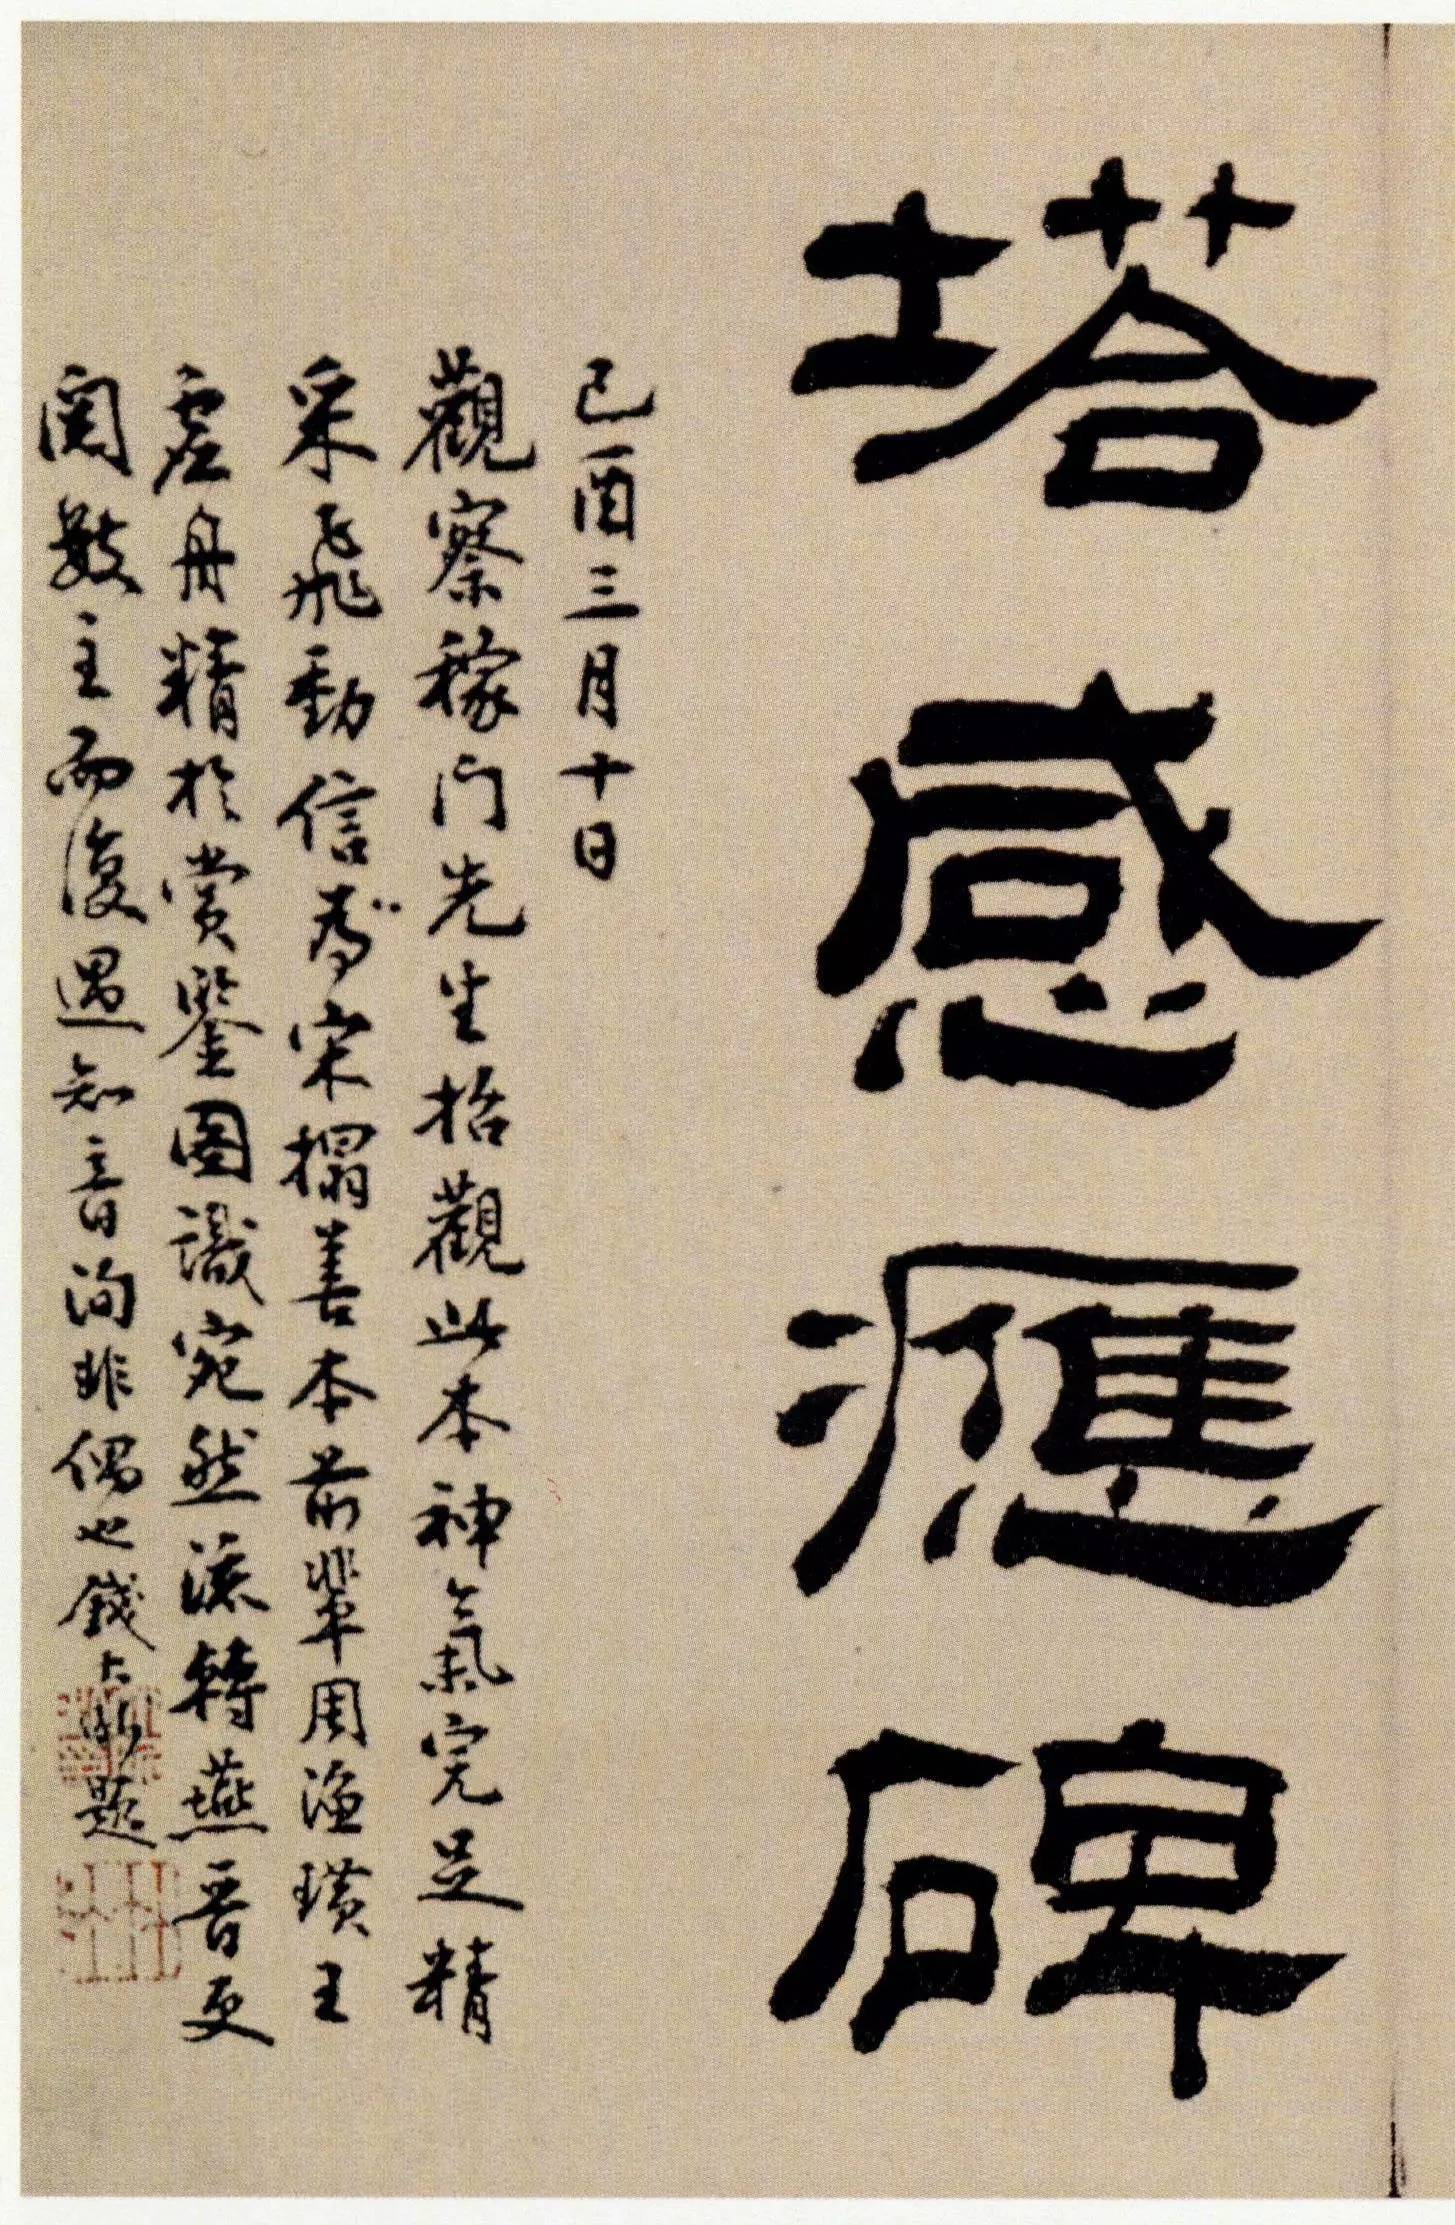 塔感應碑
己酉三月十日
觀察稼門先生招觀此本神氣完足精
采飛動信為宋搨善本前輩周漁璜王
虛舟精於賞鑒圖識宛然流轉燕晉更
閱數主而復遇知音洵非偶也錢大昕題